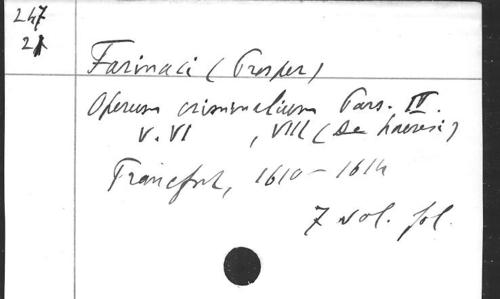 247
21
Farinaci (Prosper)
Operum criminalium Pars. IV.
V. VI , VIII (De haeresi)
Francfurt, 1610-1614
7 vol. fol.